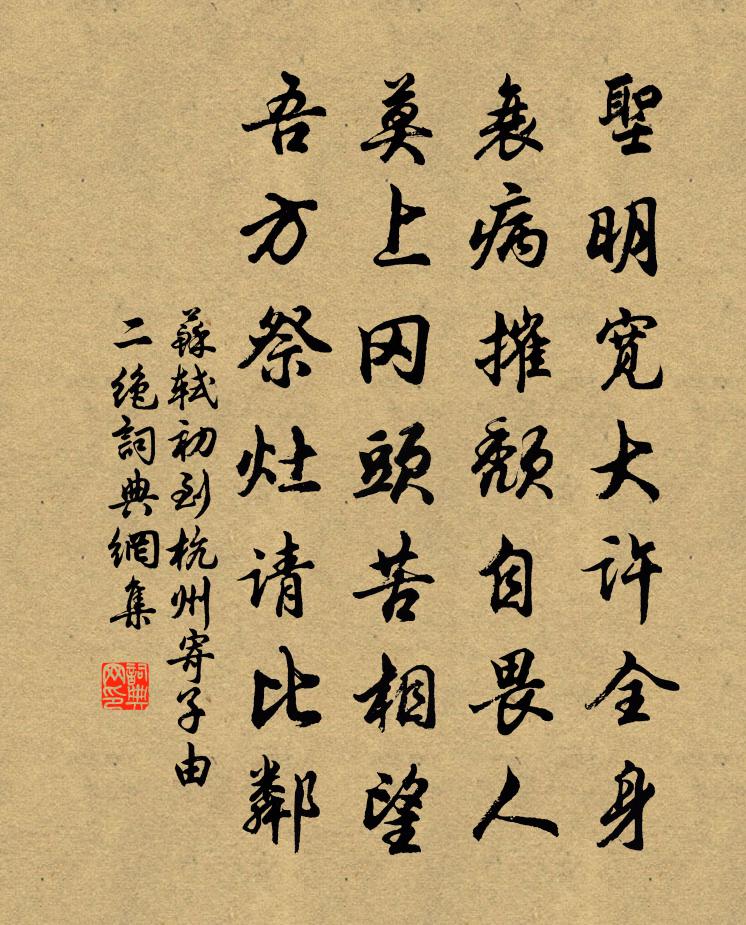 聖明寬大許全身
衰病摧頹自畏人
莫上岡頭苦相望
吾方祭灶请比鄰
蘇軾初到杭州寄子由
二絶詞典網集
詞典網印